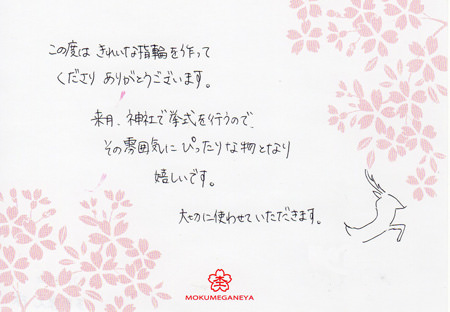 この度は きれいな指輪を作って
くださり ありがとうございます。
来月、神社で挙式を行うので、
その雰囲気に ぴったりな物となり
嬉しいです。
大切に使わせていただきます。
MOKUMEGANEYA